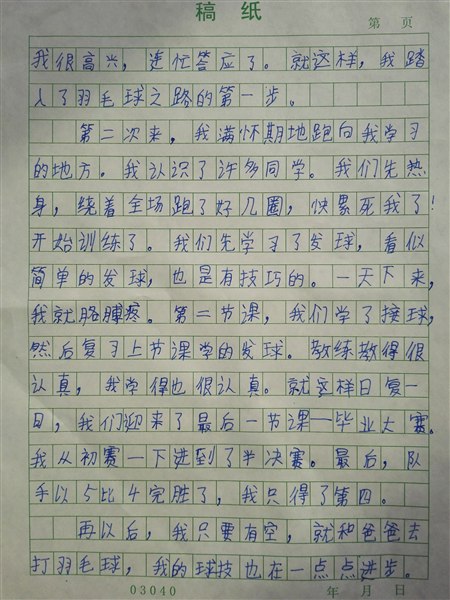 稿纸
第 页
我很高兴，连忙答应了。就这样，我踏
入了羽毛球之路的第一步。
第二次来，我满怀期地跑向我学习
的地方。我认识了许多同学。我们先热
身，绕着全场跑了好几圈，快累死我了！
开始训练了。我们先学习了发球，看似
简单的发球，也是有技巧的。一天下来，
我就胳膊疼。第二节课，我们学了接球，
然后复习上节课学的发球。教练教得很
认真，我学得也很认真。就这样日复一
日，我们迎来了最后一节课—毕业大赛。
我从初赛一下进到了半决赛。最后，队
手以5比4完胜了，我只得了第四。
再以后，我只要有空，就和爸爸去
打羽毛球，我的球技也在一点点进步。
03040
年 月 日